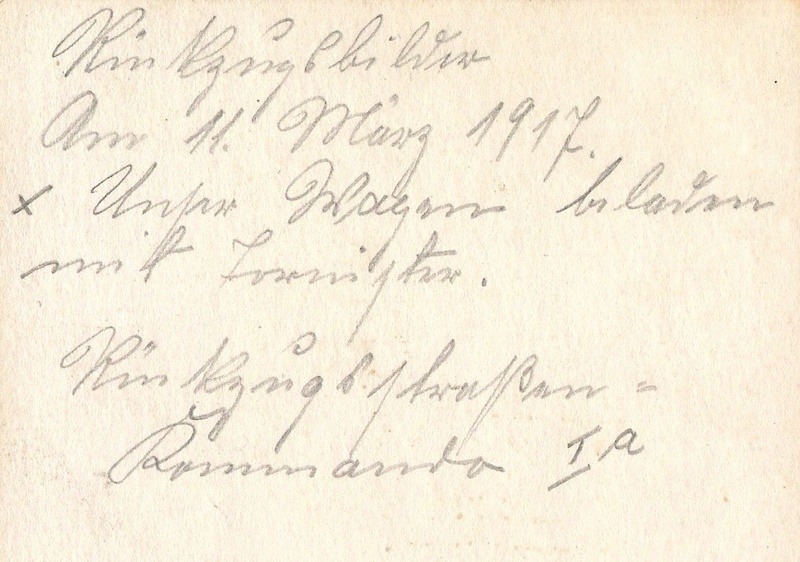 Rückzugsbilder
Am 11. März 1917.
x Unser Wagen beladen
mit Tornister.
Rückzugsstraßen =
Kommando I, a